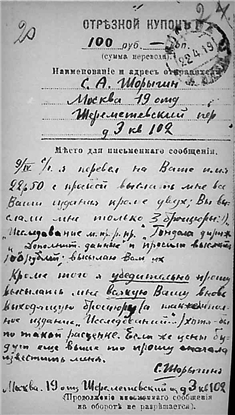 20
27
ОТРѢЗНОЙ КУПОНЪ
100 руб.
(сумма перевода)
Наименованіе и адресъ отправителя
С. А. Шорыгин
Москва 19 отд
Шереметевский пер
д 3 кв 102
Мѣсто для письменнаго сообщенія.
я перевел на Ваше имя
22р50 с просьбой выслать мне все
Ваши издания кроме двух: Вы вы-
слали мне только 3 брошюры:
Исследование Тондала
"Дополнит. данные" и просили выслать
100 рублей: высылаю Вам их
Кроме того я убедительно прошу
высылать мне всякую Вашу вновь
выходящую брошюру (а также
издание "Исследований") хотя бы
по такой расценке. Если же цены бу-
дут еще выше то прошу сначала
известить меня.
С. Шорыгин
Москва. 19 отд Шереметевский п д 3 кв 102
(Продолженіе письменнаго сообщенія
на оборотѣ не разрѣшается).